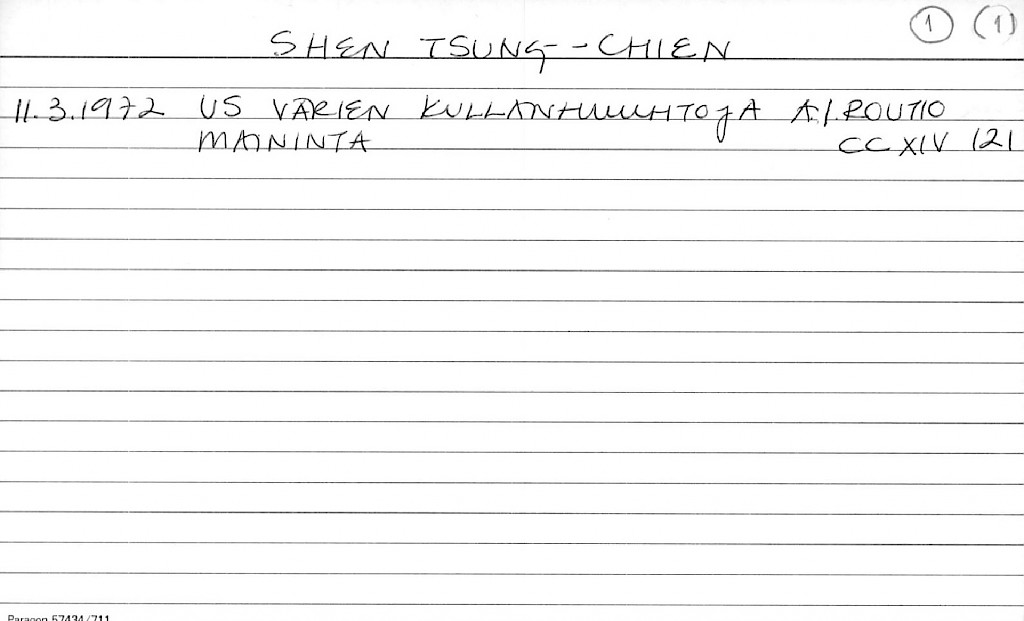 ① (1)
SHEN TSUNG-CHIEN
11.3.1972 US VÄRIEN KULLANHUUHTOJA A.I.ROUTIO
MAININTA CC XIV 121
Paragon 57434/711